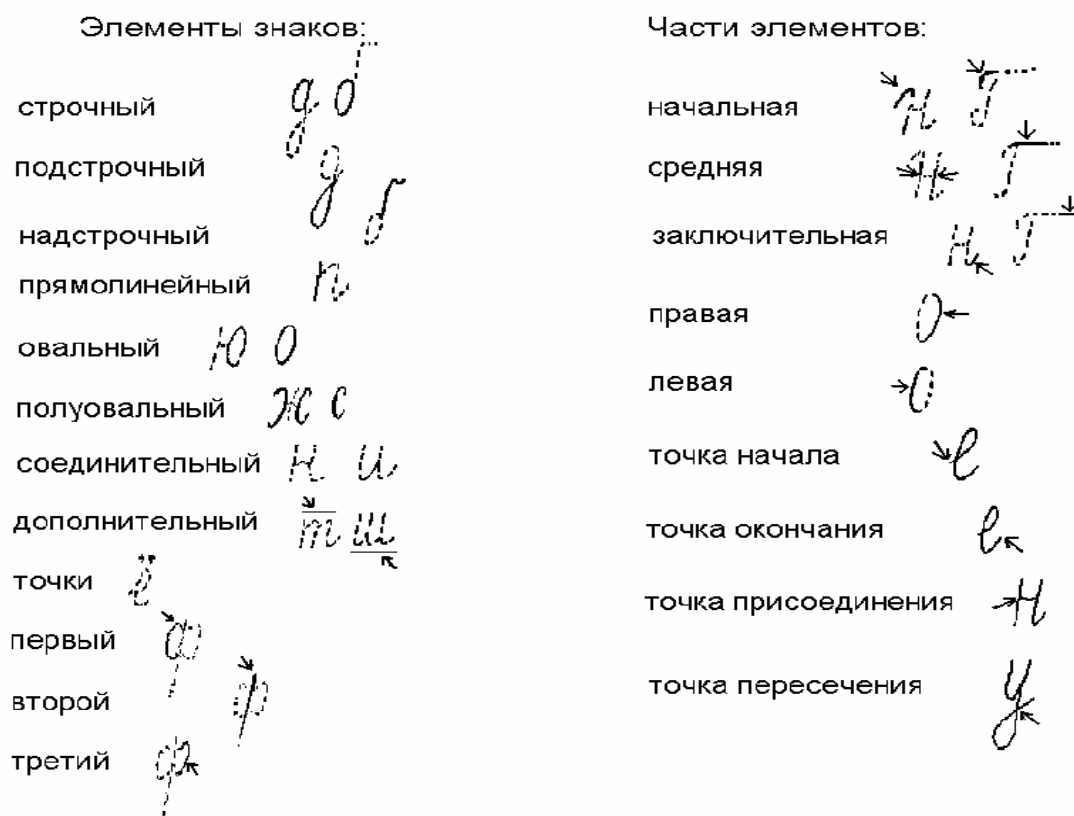 Элементы знаков:
строчный д о
подстрочный д
надстрочный б
прямолинейный п
овальный ю о
полуовальный ж с
соединительный н и
дополнительный т ш
точки ё
первый ф
второй ф
третий ф
Части элементов:
начальная н Г
средняя н Г
заключительная н Г
правая о
левая о
точка начала е
точка окончания е
точка присоединения н
точка пересечения у